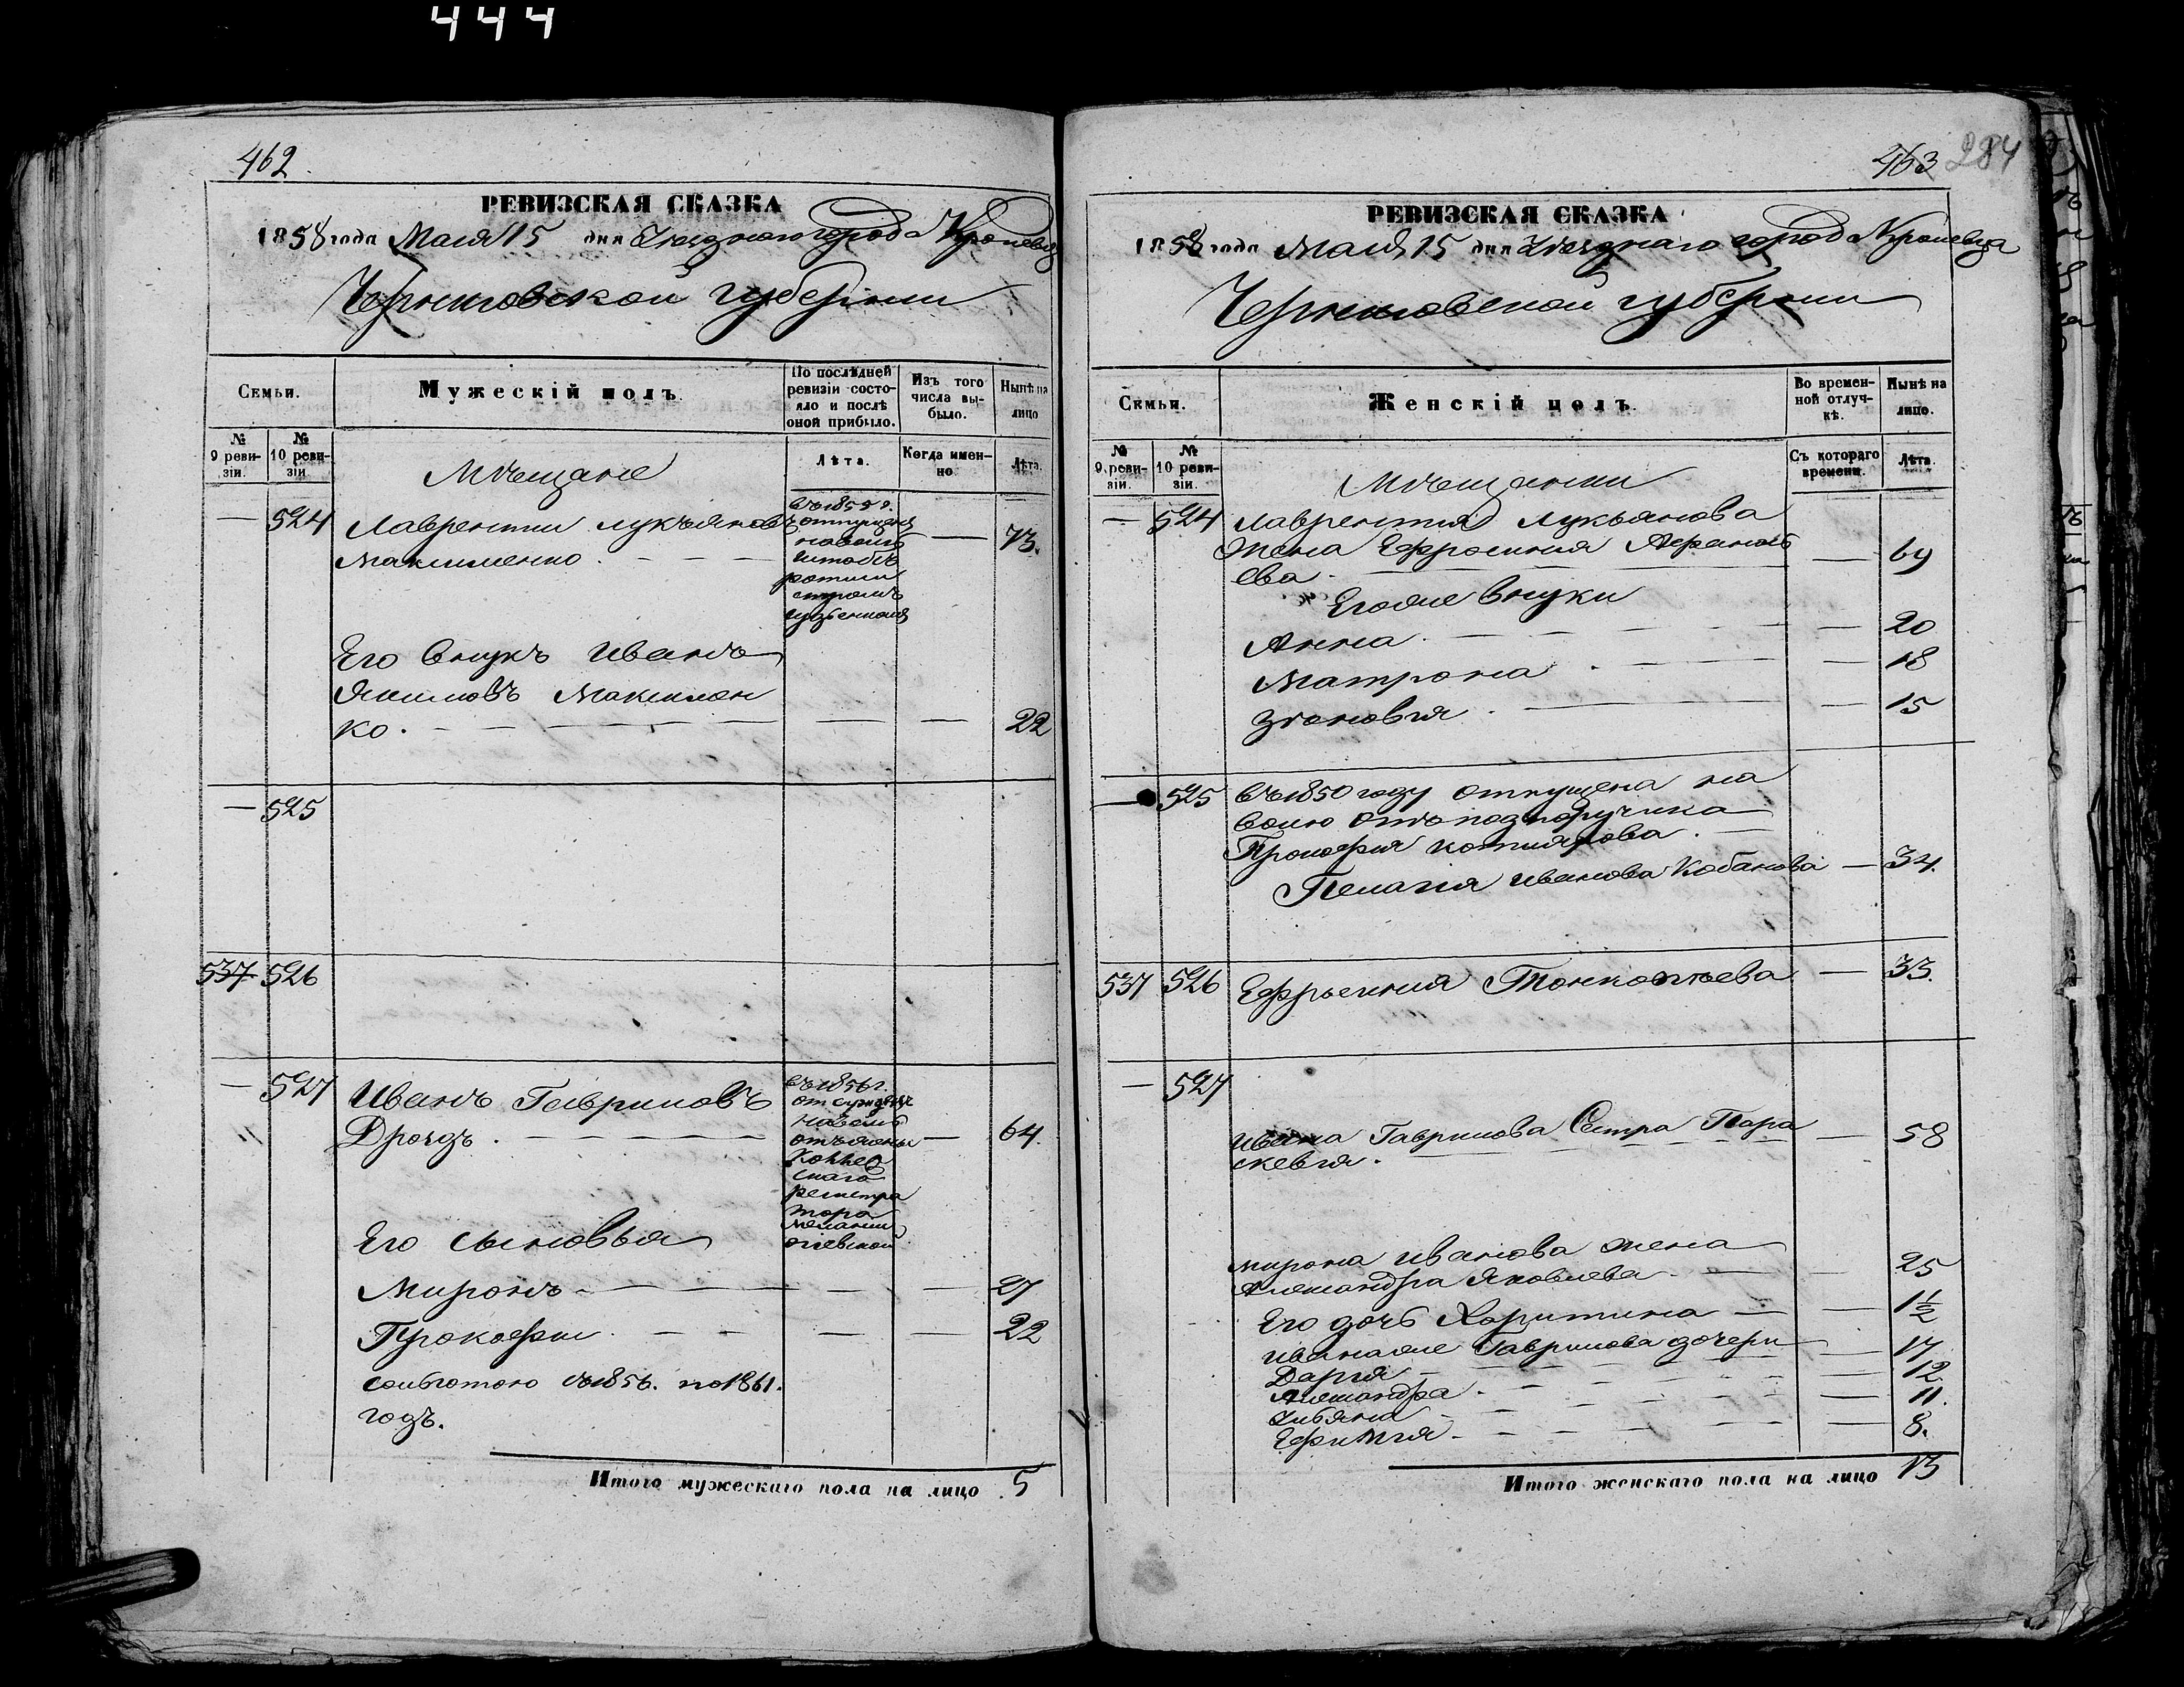 444
462
РЕВИЗСКАЯ СКАЗКА
1858 года Маія 15 дня Уезднаго города Кролевца
Черниговской губерніи
Семьи.
Мужескій полъ.
По послѣдней ревизіи состояло и послѣ оной прибыло.
Изъ того числа выбыло.
Нынѣ на лицо
№ 9 ревизіи.
№ 10 ревизіи
Лѣта.
Когда именно.
Лѣта.
Мѣщане
— 524 Лаврентий Лукъяновъ — 73.
Максименко
отпущенъ
наволю
штабъ
ротми
стромъ
Его внукъ Иванъ
Якимовъ Максимен
ко. — — 22
— 525
537 526
— 527 Иванъ Гавриловъ
Дроздъ. — 64.
въ 1856 г.
наволю
отъ жены
Коллеж
скаго
регистра
тора
Мелании
Его сыновья
Миронъ — — 27
Прокофий — — 22
сольготою съ 1856. по 1861.
годъ.
Итого мужескаго пола на лицо 5
463 284
РЕВИЗСКАЯ СКАЗКА
1858 года Маія 15 дня Уезднаго город Кролевца
Черниговской губерніи
Семьи.
Женскій полъ.
Во временной отлучкѣ.
Нынѣ на лицо.
№ 9 ревизіи.
№ 10 ревизіи.
Съ котораго времени.
Лѣта.
Мѣщанки
— 524 Лаврентия Лукьянова
жена Ефросиния Афанась
ева. — 69
Егоже внуки
Анна — 20
Матрона — 18
Зѣновия — 15
— 525 въ 1850 году отпущена на
волю отъ подпоручика
Прокофия Котлярова.
Пелагия Иванова Кобанова — 34.
537 526 — 33.
— 527
Ивана Гаврилова Сестра Пара
скевия. — 58
Мирона Иванова жена
Александра Яковлева — 25
Его дочь Харитина — 1½
Иванаже Гаврилова дочери
Дария — 17
Александра — 12
Ульяна — 11.
Ефимия — 8.
Итого женскаго пола на лицо 13